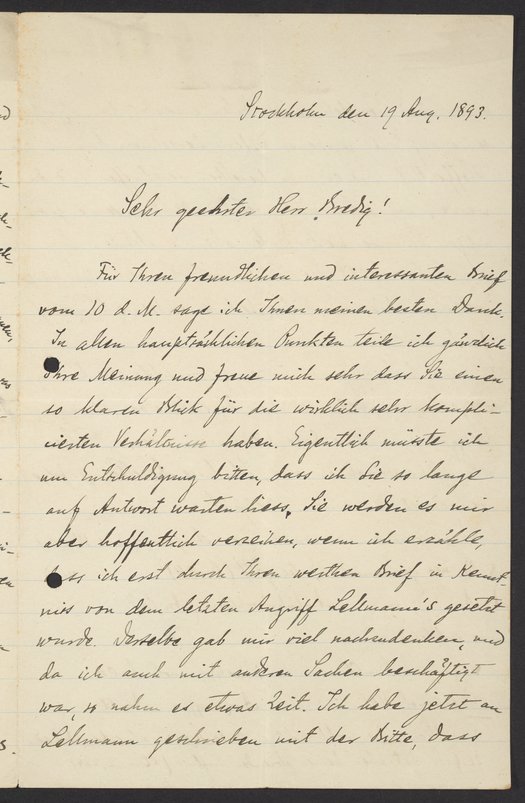 Stockholm den 19 Aug. 1893.
Sehr geehrter Herr Bredig!
Für Ihren freundlichen und interessanten Brief
vom 10 d. M. sage ich Ihnen meinen besten Dank.
In allen hauptsächlichen Punkten teile ich gänzlich
Ihre Meinung und freue mich sehr dass Sie einen
so klaren Blick für die wirklich sehr kompli-
cierten Verhältnisse haben. Eigentlich müsste ich
um Entschuldigung bitten, dass ich Sie so lange
auf Antwort warten liess. Sie werden es mir
aber hoffentlich verzeihen, wenn ich erzähle,
dass ich erst durch Ihren werthen Brief in Kennt-
niss von dem letzten Angriff Lellmann's gesetzt
wurde. Dasselbe gab mir viel nachzudenken, und
da ich auch mit anderen Sachen beschäftigt
war, so nahm es etwas Zeit. Ich habe jetzt an
Lellmann geschrieben mit der Bitte, dass